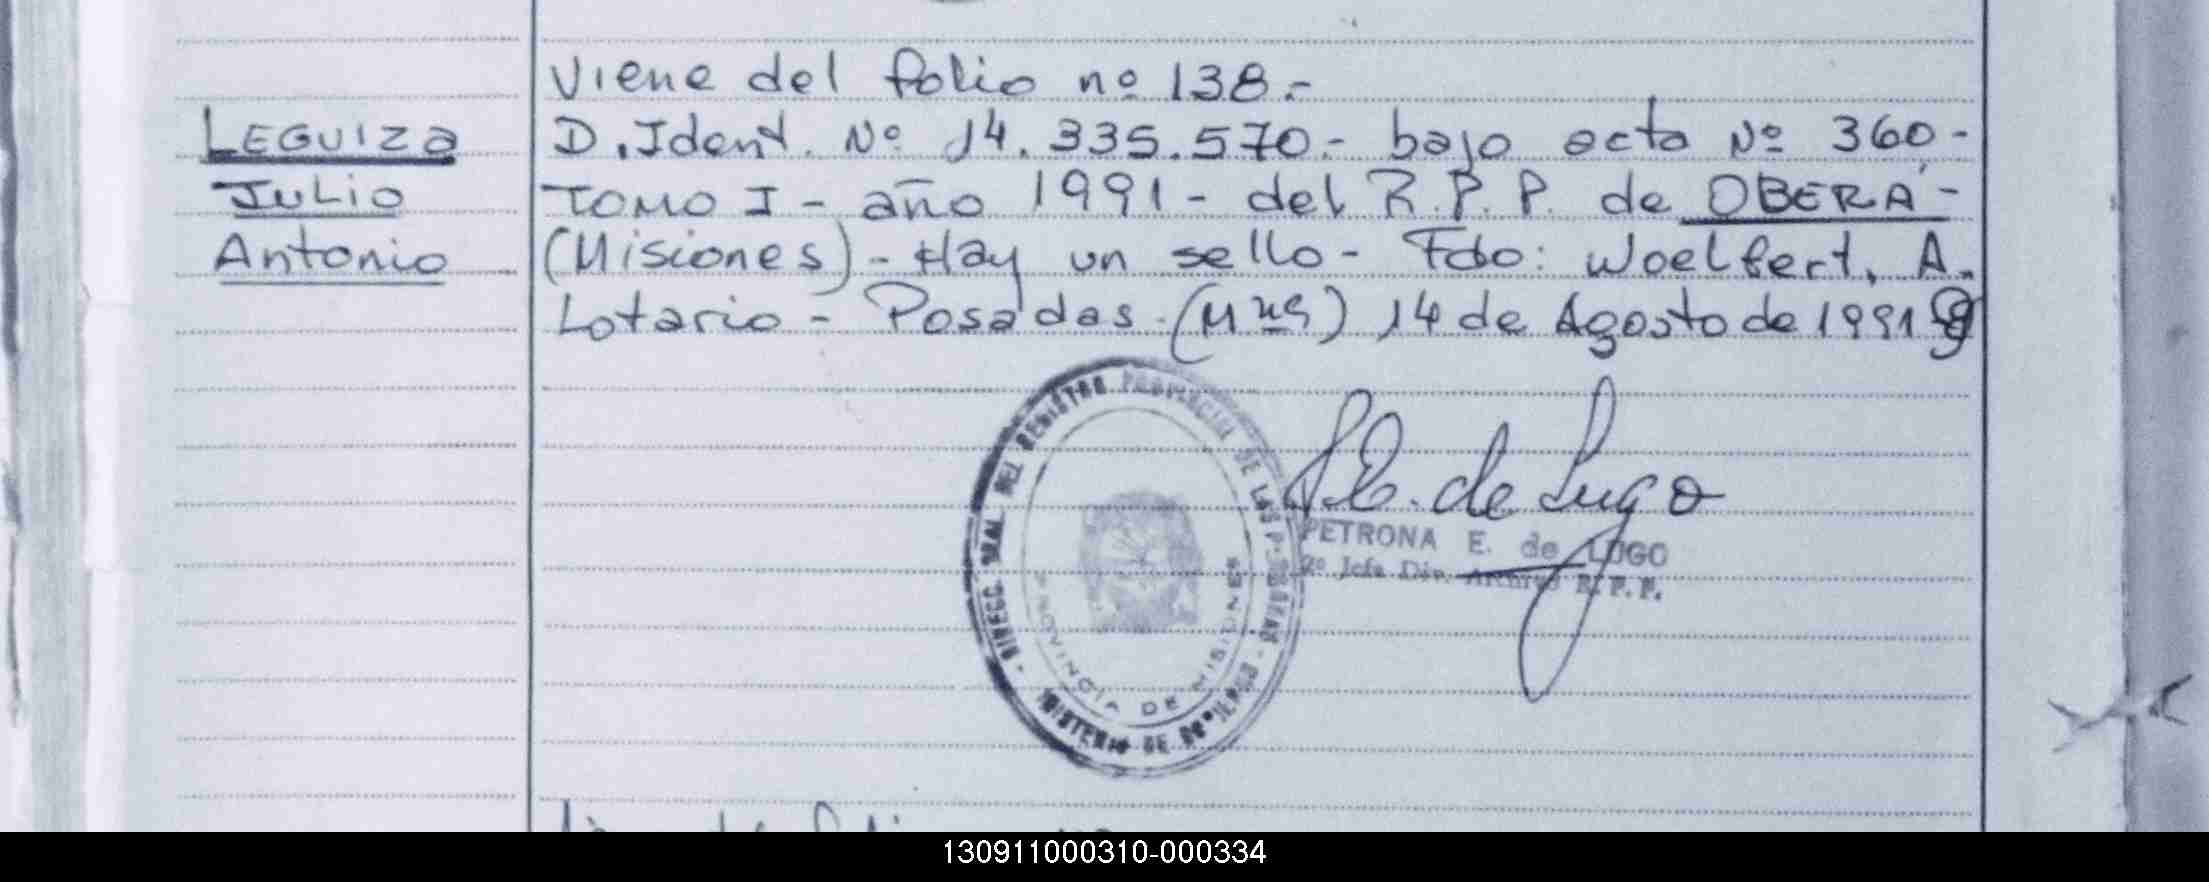 Viene del folio nº 138.-
LEGUIZA
JULIO
Antonio
D. Ident. Nº 14.335.570.- bajo acta Nº 360-
TOMO I - año 1991 - del R.P.P. de OBERÁ -
(Misiones) - Hay un sello - Fdo: Woelfert, A.
Lotario - Posadas (Mnes) 14 de Agosto de 1991
DIRECC. GRAL. DEL REGISTRO PROVINCIAL DE LAS PERSONAS
MINISTERIO DE GOBIERNO
PROVINCIA DE MISIONES
P.E. de Lugo
PETRONA E. de LUGO
2º Jefe Div. Archivo R.P.P.
130911000310-000334